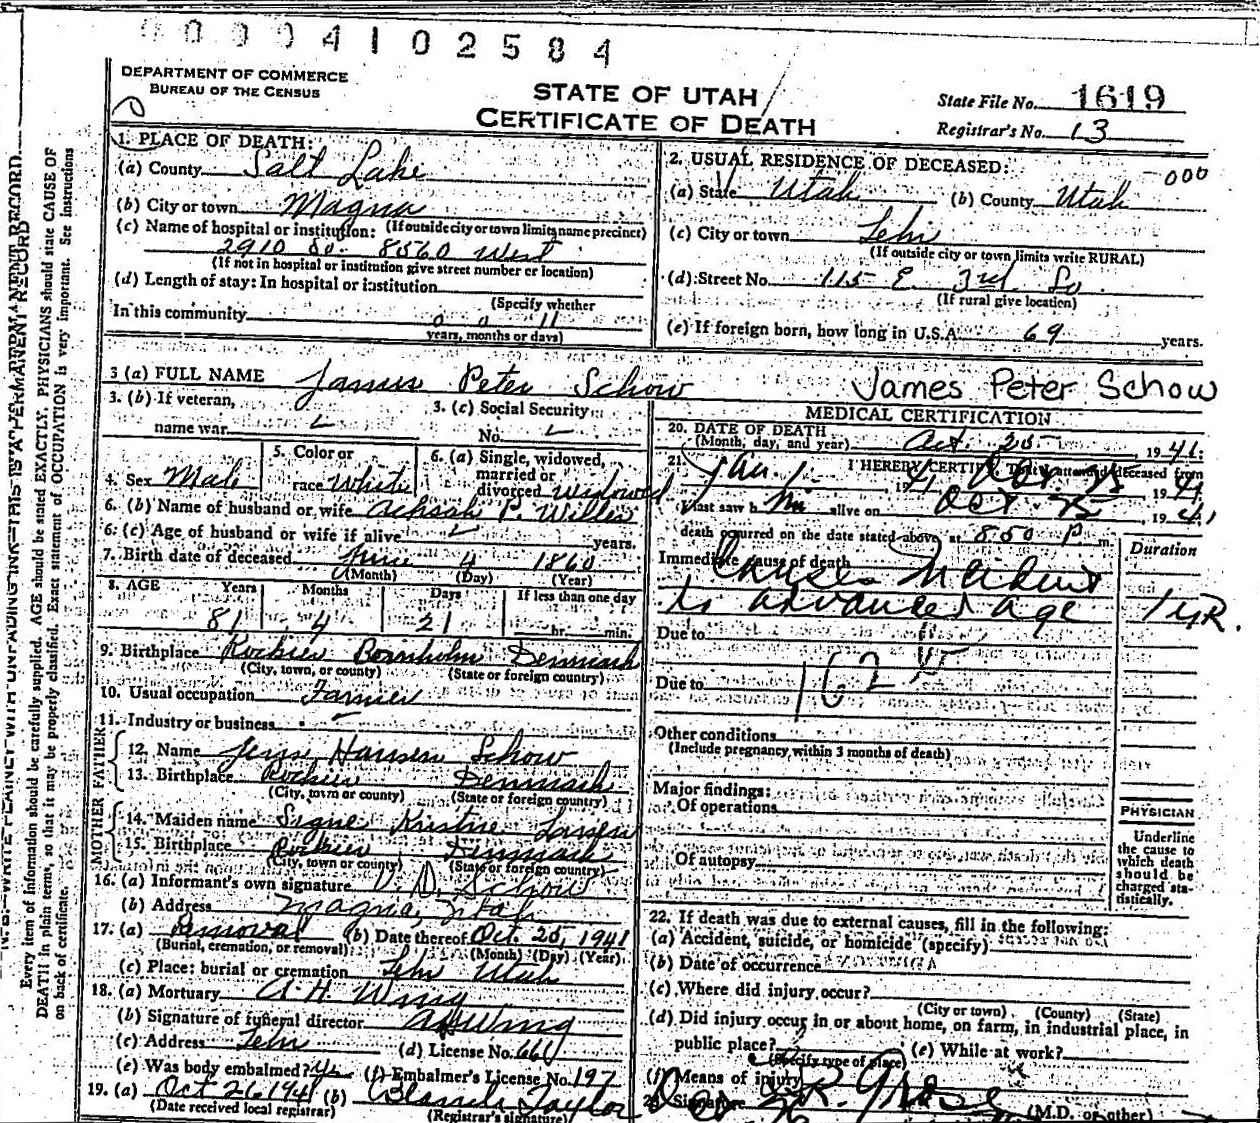 00004102584
DEPARTMENT OF COMMERCE
BUREAU OF THE CENSUS
STATE OF UTAH
CERTIFICATE OF DEATH
State File No. 1619
Registrar's No. 13
1. PLACE OF DEATH:
(a) County Salt Lake
(b) City or town Magna
(If outside city or town limits, name precinct)
(c) Name of hospital or institution:
2910 So. 8560 West
(If not in hospital or institution give street number or location)
(d) Length of stay: In hospital or institution
(Specify whether
In this community 0 0 11
years, months or days)
2. USUAL RESIDENCE OF DECEASED: -000
(a) State Utah (b) County Utah
(c) City or town Lehi
(If outside city or town limits write RURAL)
(d) Street No. 115 E. 3rd So.
(If rural give location)
(e) If foreign born, how long in U.S.A. 69 years.
3 (a) FULL NAME James Peter Schow James Peter Schow
3. (b) If veteran,
name war
3. (c) Social Security
No.
4. Sex Male
5. Color or
race White
6. (a) Single, widowed,
married or
divorced widowed
6. (b) Name of husband or wife Achsah P. Willes
6. (c) Age of husband or wife if alive years.
7. Birth date of deceased June 4 1860
(Month) (Day) (Year)
8. AGE Years Months Days If less than one day
81 4 21 hr. min.
9. Birthplace Bornholm Denmark
(City, town, or county) (State or foreign country)
10. Usual occupation Farmer
11. Industry or business
FATHER
12. Name Jens Hansen Schow
13. Birthplace Denmark
(City, town or county) (State or foreign country)
MOTHER
14. Maiden name Signe Kristine Larsen
15. Birthplace Denmark
(City, town or county) (State or foreign country)
16. (a) Informant's own signature V. D. Schow
(b) Address Magna, Utah
17. (a) Removal (b) Date thereof Oct. 25, 1941
(Burial, cremation, or removal) (Month) (Day) (Year)
(c) Place: burial or cremation Lehi Utah
18. (a) Mortuary A. H. Wing
(b) Signature of funeral director AHWing
(c) Address Lehi (d) License No. 660
(e) Was body embalmed? yes (f) Embalmer's License No. 197
19. (a) Oct 26 1941 (b) Taylor
(Date received local registrar) (Registrar's signature)
MEDICAL CERTIFICATION
20. DATE OF DEATH
(Month, day, and year) Oct. 25 1941
21. I HEREBY CERTIFY, That I attended deceased from
Jan. 1. 1941 Oct. 25 1941
I last saw him alive on Oct. 25, 1941
death occurred on the date stated above, at 8:50 P m.
Immediate cause of death Duration
Causes Incident
to advanced age 1 yr.
Due to
Due to 162
Other conditions
(Include pregnancy within 3 months of death)
Major findings:
Of operations
Of autopsy
PHYSICIAN
Underline
the cause to
which death
should be
charged sta-
tistically.
22. If death was due to external causes, fill in the following:
(a) Accident, suicide, or homicide (specify)
(b) Date of occurrence
(c) Where did injury occur?
(City or town) (County) (State)
(d) Did injury occur in or about home, on farm, in industrial place, in
public place? (e) While at work?
(Specify type of place)
(f) Means of injury
23. Signature
(M.D. or other)
WRITE PLAINLY WITH UNFADING INK—THIS IS A PERMANENT RECORD
Every item of information should be carefully supplied. AGE should be stated EXACTLY. PHYSICIANS should state CAUSE OF
DEATH in plain terms, so that it may be properly classified. Exact statement of OCCUPATION is very important. See instructions
on back of certificate.